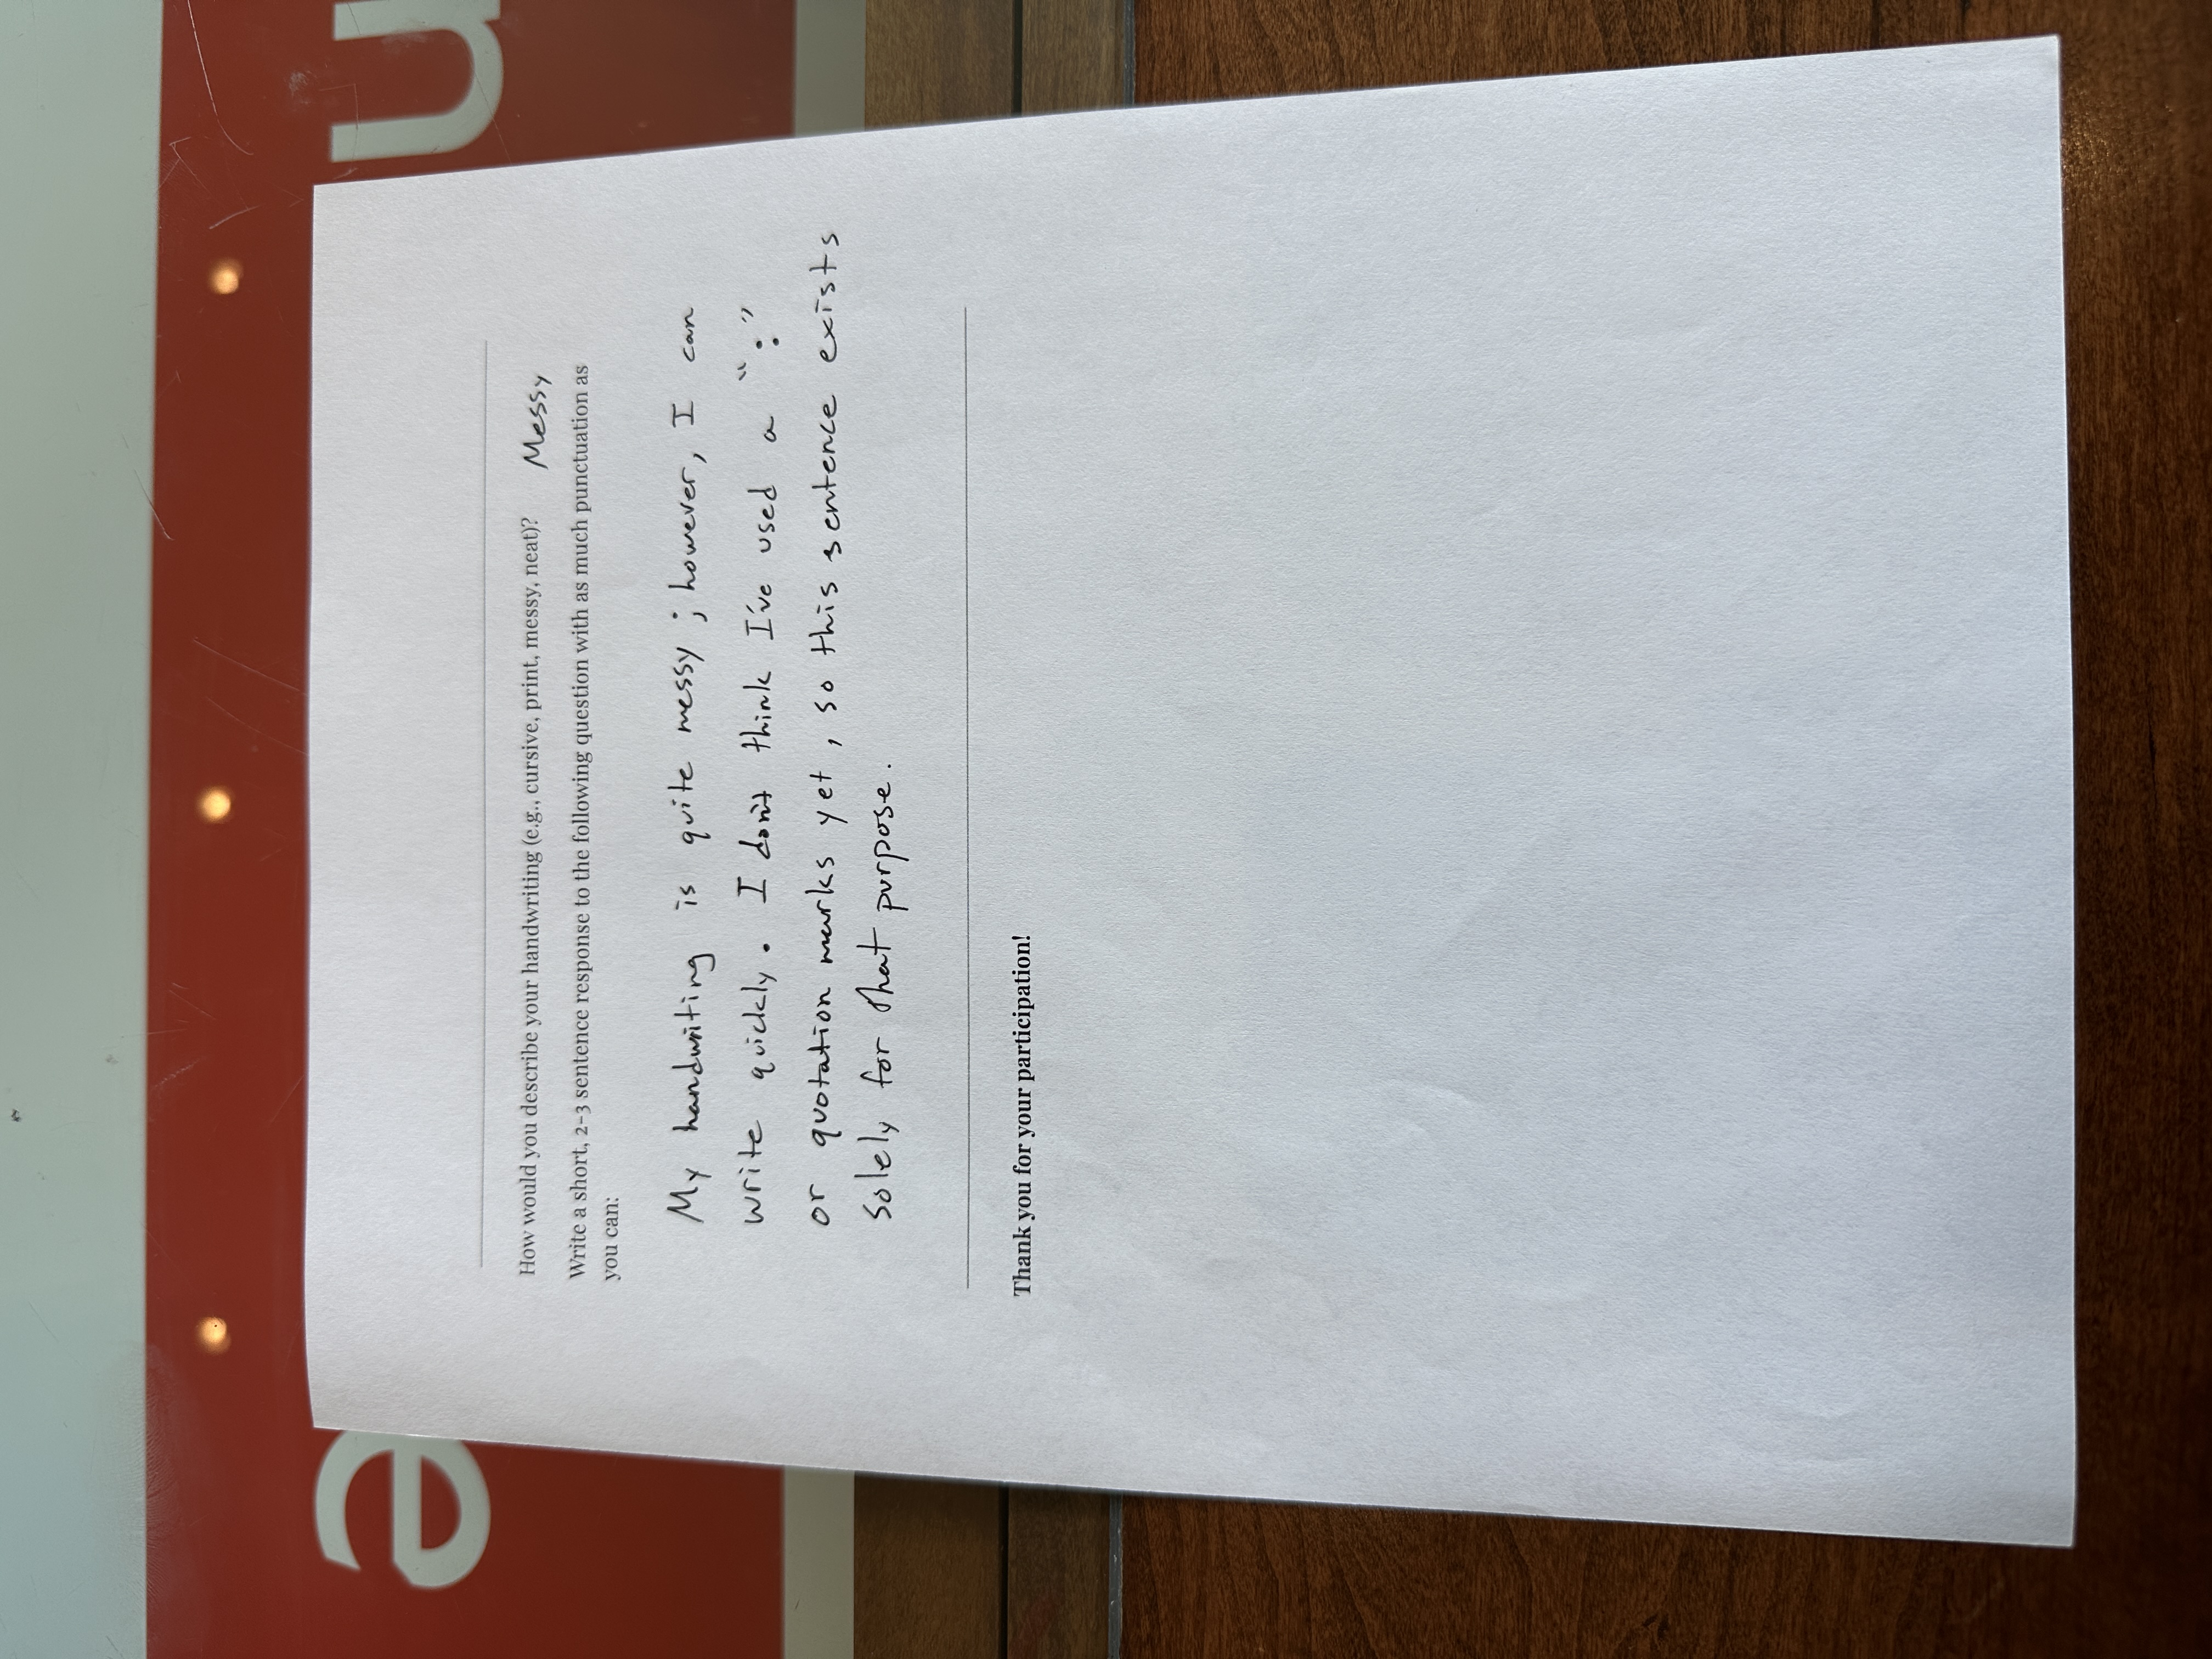 How would you describe your handwriting (e.g., cursive, print, messy, neat)? Messy
Write a short, 2-3 sentence response to the following question with as much punctuation as
you can:
My handwriting is quite messy; however, I can
write quickly. I don't think I've used a “:”
or quotation marks yet, so this sentence exists
solely for that purpose.
Thank you for your participation!